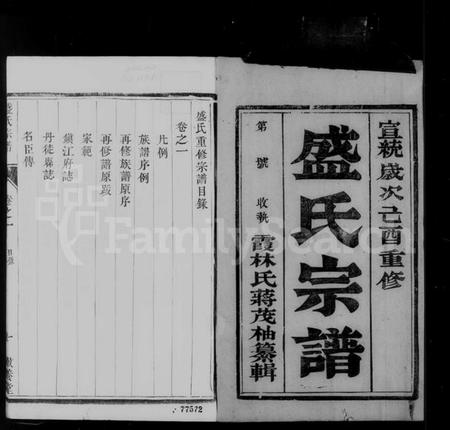 宣統歲次己酉重修
盛氏宗譜
第 號 收執
霞林氏蔣茂柚纂輯
盛氏重修宗譜目錄
卷之一
凡例
族譜序例
再修族譜原序
再修譜原跋
家範
鎮江府誌
丹徒縣誌
名臣傳
盛氏宗譜
卷之一
目錄
一
FamilySearch
77572